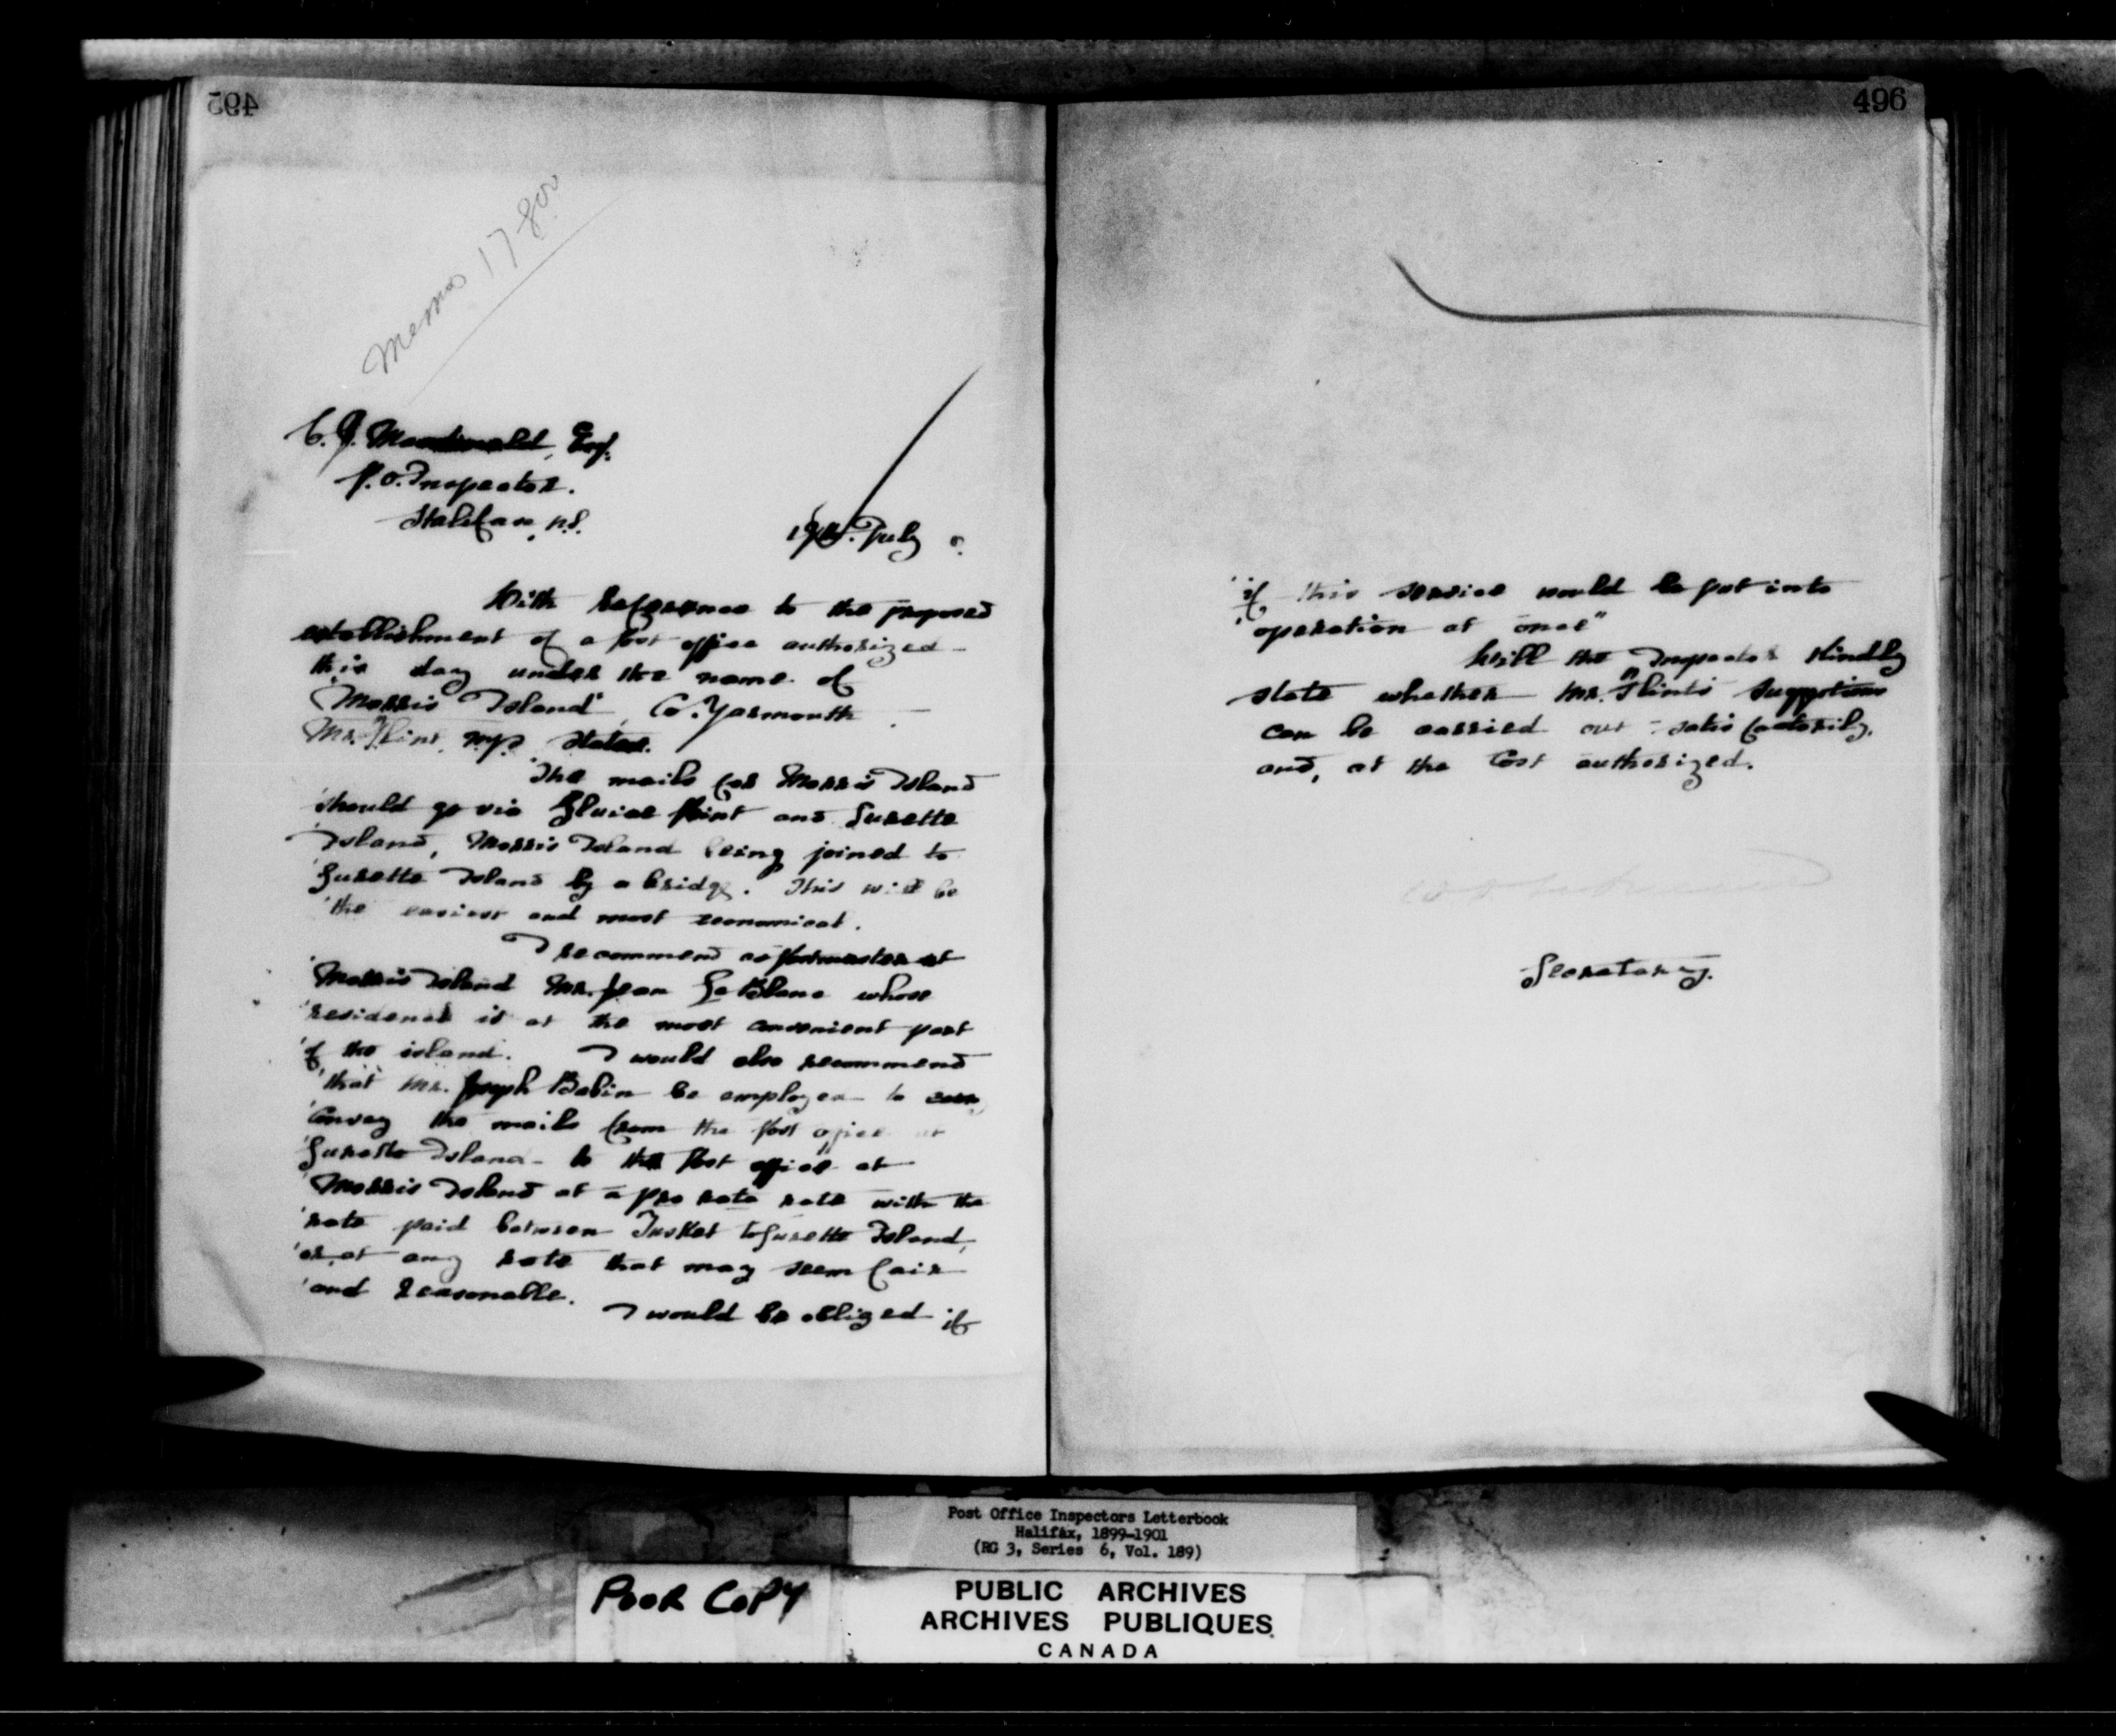 495
Memo 17
C. J. Macdonald, Esq.
P.O. Inspector.
Halifax, N.S.
19th. July
With reference to the proposed
establishment of a Post office authorized
this day under the name of
"Morris Island", Co. Yarmouth
Mr. Flint, M.P. states.
"The mails for Morris Island
"should go via Sluice Point and Surette
"Island, Morris Island being joined to
"Surette Island by a bridge. This will be
"the easiest and most economical.
"I recommend as postmaster at
"Morris Island Mr. Jean Le Blanc whose
"residence is at the most convenient part
"of the island. I would also recommend
"that Mr. Joseph Babin be employed to
"convey the mails from the Post office at
"Surette Island to the Post office at
"Morris Island at a pro rata rate with the
"rate paid between Tusket to Surette Island,
"or, at any rate that may seem fair
"and reasonable. I would be obliged if
496
"if this service would be put into
"operation at once"
Will the Inspector kindly
state whether Mr. Flint's suggestions
can be carried out satisfactorily,
and, at the cost authorized.
Secretary.
Post Office Inspectors Letterbook
Halifax, 1899-1901
(RG 3, Series 6, Vol. 189)
POOR COPY
PUBLIC ARCHIVES
ARCHIVES PUBLIQUES
CANADA